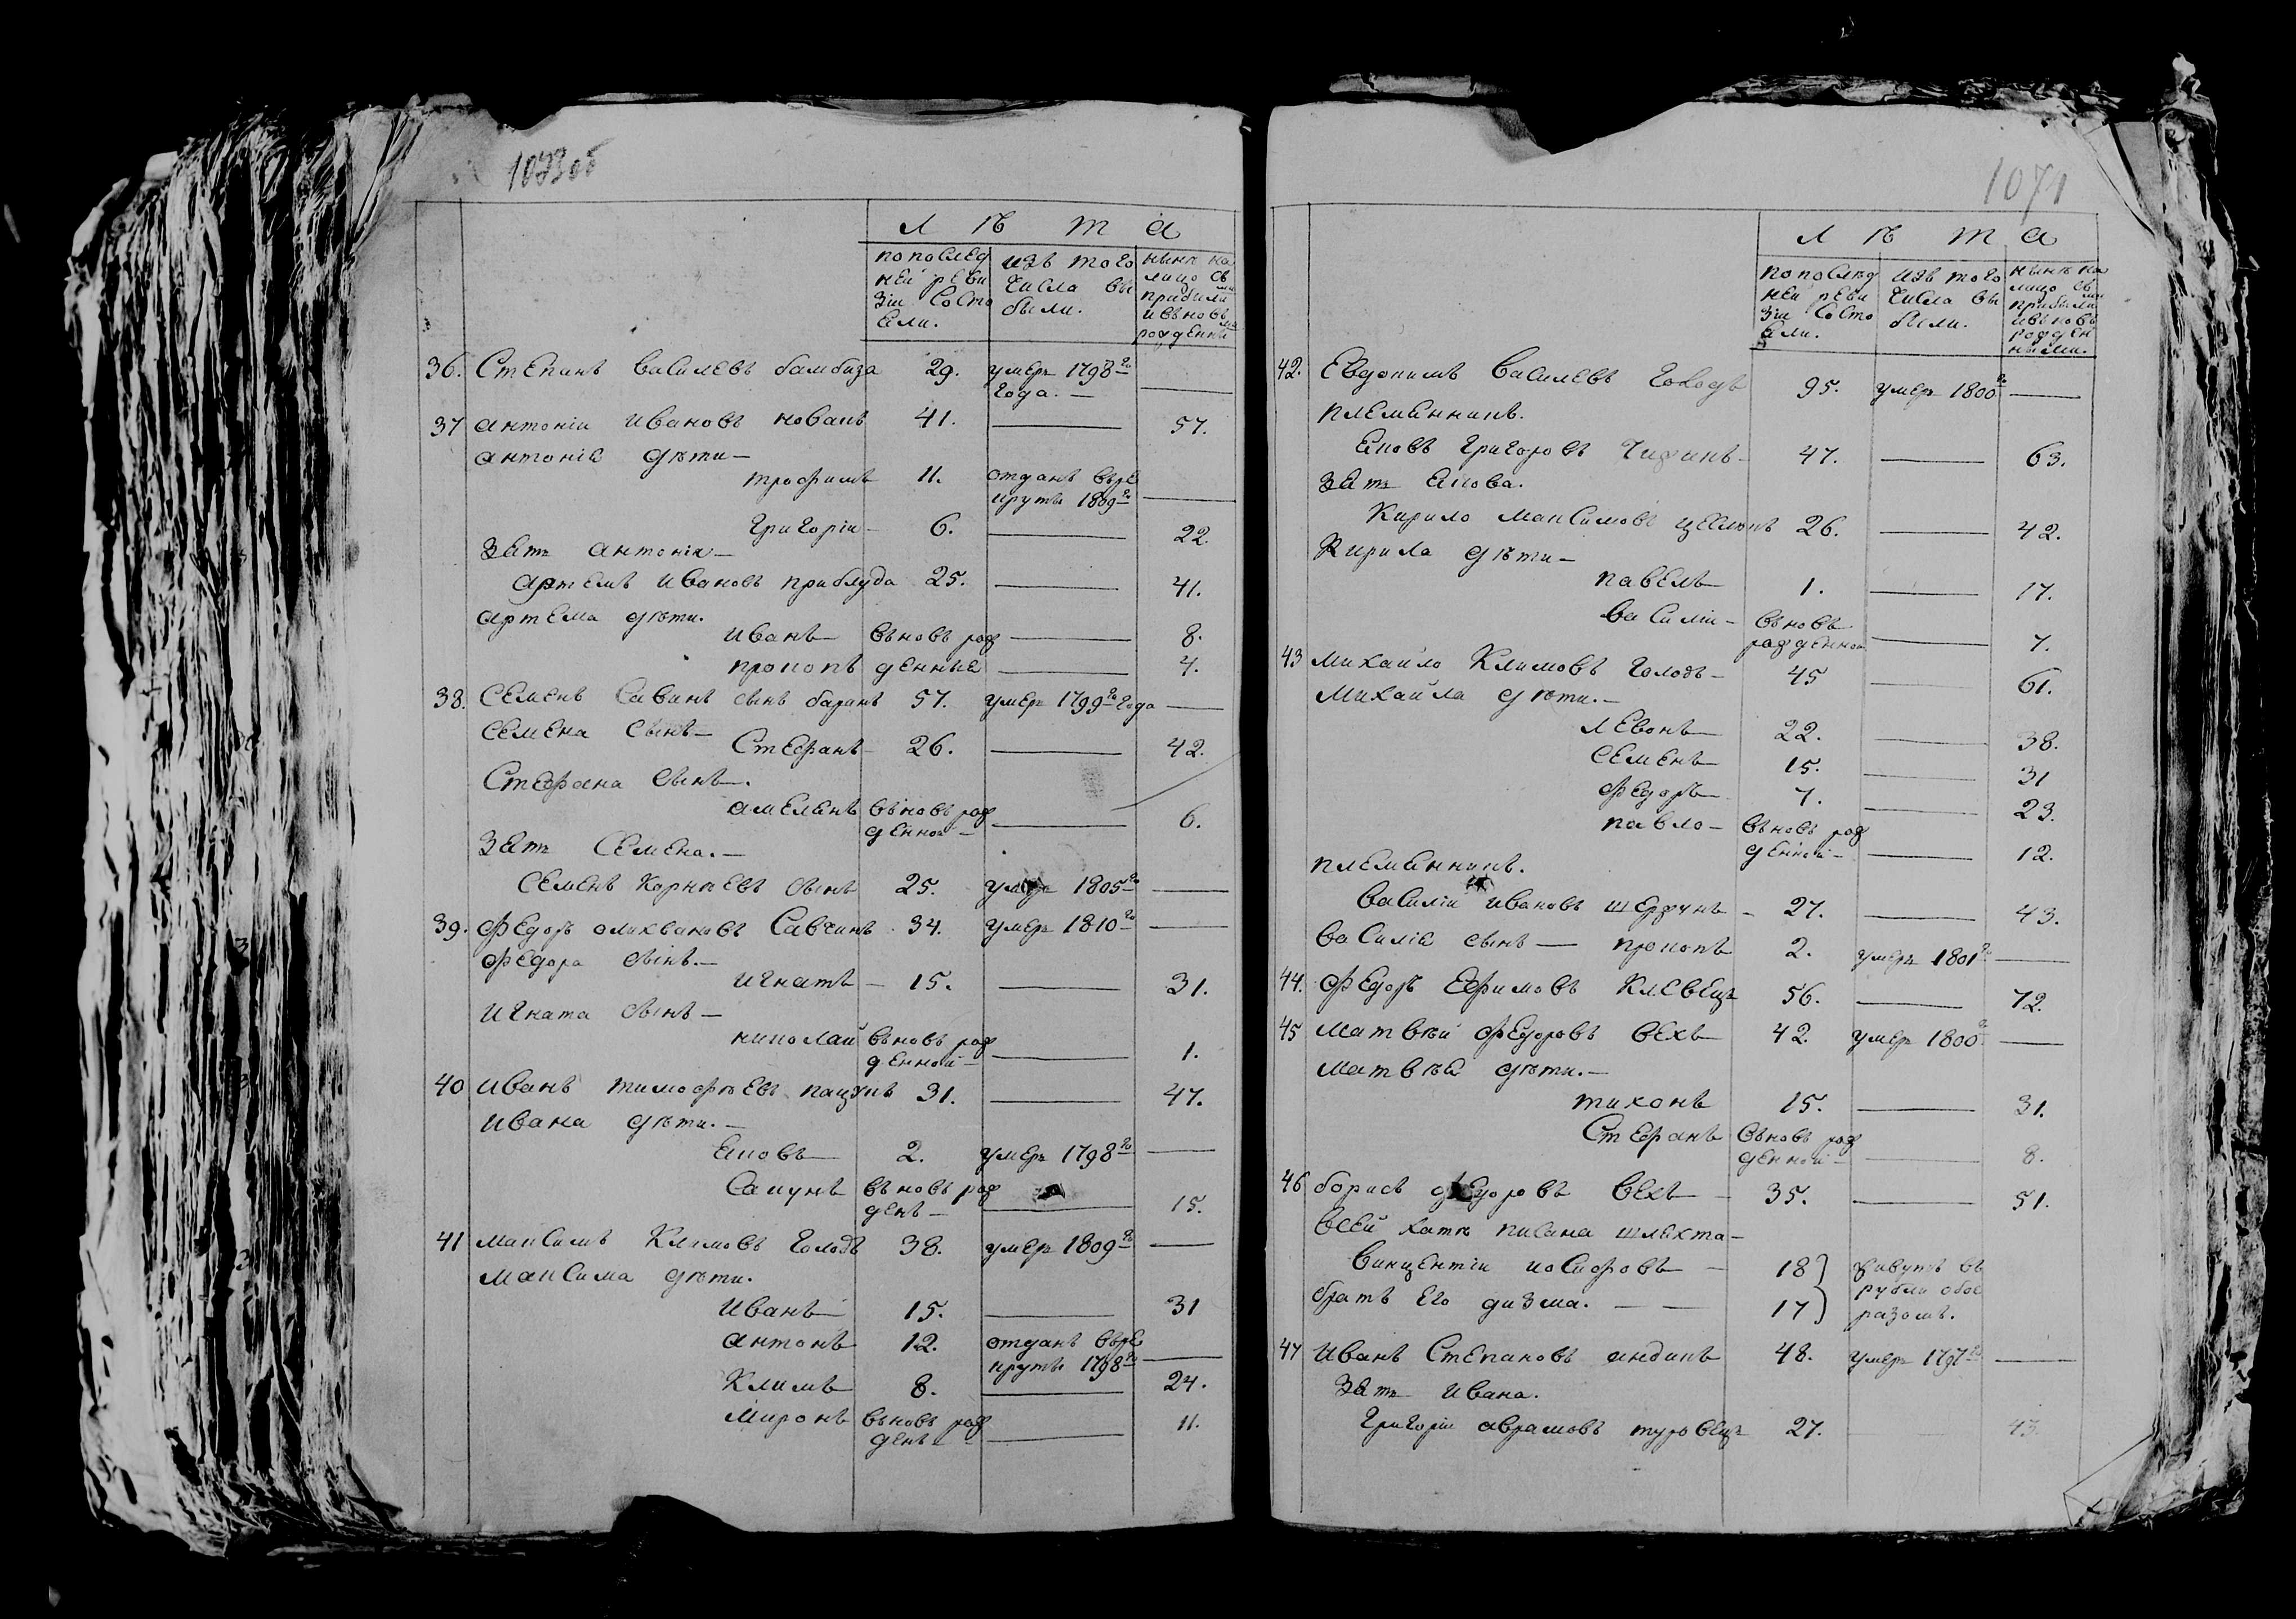 1073об
Л ѣ т а
по послед
ней реви
зіи состо
яли.
изъ того
числа вы
были.
нынѣ на
лицо съ
прибыли
ми
и вновь
рожденны
ми
36. Степанъ Василевъ бамбиза 29. умеръ 1798го
года. —
37 антоній ивановъ новакъ 41. — 57.
антонія дѣти —
трофимъ 11. отданъ въре
круты 1809го —
григорій — 6. — 22.
зять антонія —
артемъ ивановъ приблуда 25. — 41.
артема дѣти.
иванъ — вьновь рож — 8.
прокопъ денные — 4.
38. Семенъ Савинъ сынъ баранъ 57. умеръ 1799го года —
семена сынъ —
Стефанъ — 26. — 42.
Стефана сынъ —.
амелянъ вьновь рож
денной — — 6.
зять Семена. —
семенъ корнѣевъ сынъ 25. умеръ 1805го —
39. Федоръ Савчинъ 34. умеръ 1810го —
федора сынъ. —
игнатъ — 15. — 31.
игната сынъ —
николай вьновь рож
денной — — 1.
40 иванъ тимофѣевъ пацукъ 31. — 47.
ивана дѣти. —
яковъ — 2. умеръ 1798го —
Сакунъ вьновь рож
денъ — — 15.
41 максимъ Климовъ голодъ 38. умеръ 1809го —
максима дѣти.
иванъ — 15. — 31
антонъ 12. отданъ въре
круты 1798го —
Климъ 8. — 24.
миронъ вьновь рож
денъ — — 11.
1071
Л ѣ т а
по послѣд
ней реви
зіи состо
яли.
изъ того
числа вы
были.
нынѣ на
лицо съ
прибылы
ми
и вновь
рожден
ными.
42. Евдокимъ василевъ голодъ 95. умеръ 1800го —
племянникъ.
яковъ григоровъ 47. — 63.
зять якова.
Кирило максимовъ 26. — 42.
Кирила дѣти —
павелъ — 1. — 17.
василій — вьновь
рожденной — 7.
43 михайло Климовъ голодъ — 45 — 61.
михайла дѣти. —
левонъ — 22. — 38.
семенъ — 15. — 31
федоръ — 7. — 23.
павло — вьновь рож
денной — — 12.
племянникъ.
василій ивановъ — 27. — 43.
василія сынъ — прокопъ 2. умеръ 1801го —
44. федоръ Ефимовъ Клевецъ 56. — 72.
45 матвѣй федоровъ вехъ — 42. умеръ 1800го —
матвѣя дѣти. —
тихонъ 15. — 31.
Стефанъ вьновь рож
денной — — 8.
46 борисъ федоровъ вехъ — 35. — 51.
всей хатѣ писана шляхта —
винцентій иосифовъ — 18 } живутъ въ
братъ его дизма. — — 17 } рубли обое
разомъ.
47 иванъ Степановъ индикъ 48. умеръ 1797го —
зять ивана.
григорій аврамовъ туровецъ 27. 43.